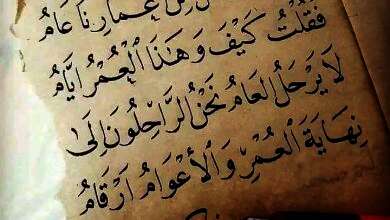 مِنْ عُمَارِنَا عَامُ
فَقُلْتُ كَيْفَ وَهَٰذَا الْعُمْرُ ايَّامُ
لَا يَرْحَلُ العَامُ نَحْنُ الرَّاحِلُونَ اِلىٰ
نِهَايَةِ العُمْرِ وَالأعْوَامُ ارْقَامُ